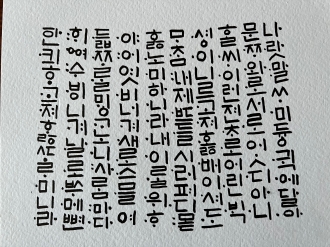 나랏말ᄊᆞ미듕귁에달아
문ᄍᆞ와로서르ᄉᆞᄆᆞᆺ디아니
ᄒᆞᆯᄊᆡ이런젼ᄎᆞ로어린ᄇᆡᆨ
셩이니르고져홇배이셔도
ᄆᆞᄎᆞᆷ내제ᄠᅳ들시러펴디몯
ᄒᆞᇙ노미하니라내이ᄅᆞᆯ위ᄒᆞ
야어엿비너겨새로스믈여
듧ᄍᆞᄅᆞᆯᄆᆡᇰᄀᆞ노니사ᄅᆞᆷ마다
ᄒᆡᅇᅧ수ᄫᅵ니겨날로ᄡᅮ메뼌
한킈ᄒᆞ고져ᄒᆞᇙᄯᆞᄅᆞ미니라